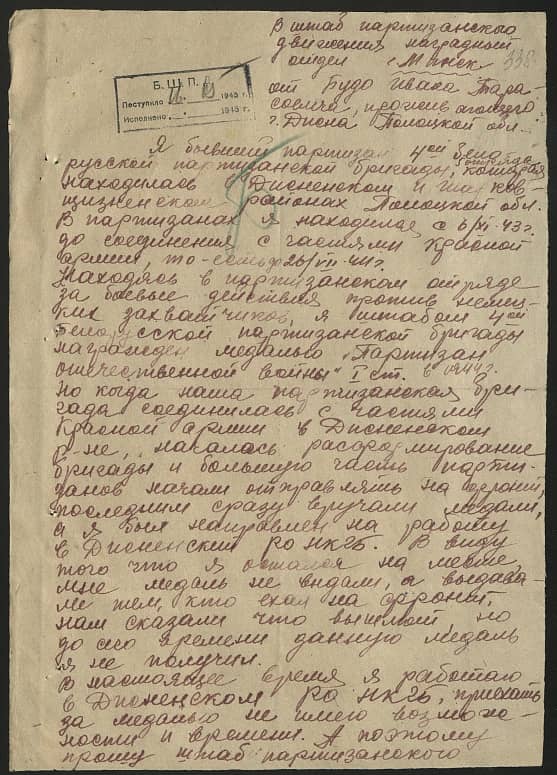 В штаб партизанского
движения наградный
отдел г. Минск
338
от Будо Ивана Тара-
совича, прожив. в
г. Дисна Полоцкой обл.
Б. Ш. П. Д.
Поступило 1945 г.
Исполнено 1945 г.
Я бывший партизан 4ой Бело-
отряда
русской партизанской бригады, которая
находилась в Дисненском и
районах Полоцкой обл.
В партизанах я находился с 6/VI-43 г.
до соединения с частями Красной
армии, то-есть до 44 г.
Находясь в партизанском отряде
за боевые действия против немец-
ких захватчиков, я штабом 4ой
Белорусской партизанской бригады
награжден медалью „Партизан
отечественной войны" I ст. в 1944 г.
Но когда наша партизанская бри-
гада соединилась с частями
Красной армии в Дисненском
р-не, началась расформирование
бригады и большую часть парти-
занов начали отправлять на фронт,
последним сразу вручали медали,
а я был направлен на работу
в Дисненский РО НКГБ. В виду
того что я остался на месте,
мне медаль не выдали, а выдава-
ли тем, кто ехал на фронт,
нам сказали что вышлют, но
до сего времени данную медаль
я не получил.
В настоящее время я работаю
в Дисненском РО НКГБ, приехать
за медалью не имею возмож-
ности и времени. А поэтому
прошу штаб партизанского